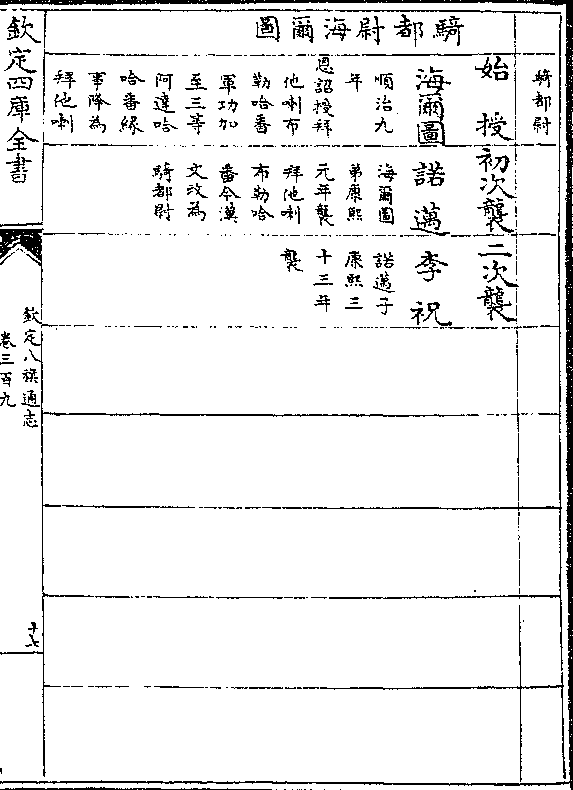 騎都尉海爾圖
騎都尉
始授
初次襲
二次襲
海爾圖
順治九
年
恩詔授拜
他喇布
勒哈番
軍功加
至三等
阿達哈
哈番緣
事降為
拜他喇
諾邁
海爾圖
弟康熙
元年襲
拜他喇
布勒哈
番今漢
文改為
騎都尉
李祝
諾邁子
康熙三
十三年
襲
欽定四庫全書
欽定八旗通志
卷三百九